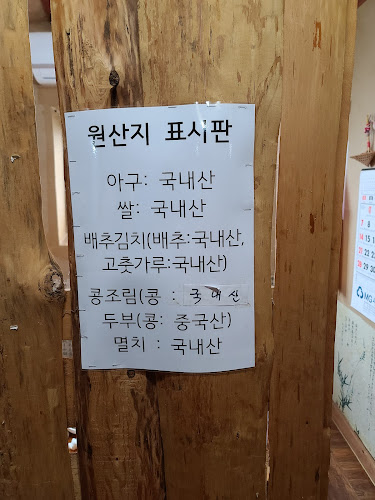 원산지 표시판
아구: 국내산
쌀: 국내산
배추김치(배추:국내산,
고춧가루:국내산)
콩조림(콩 : 국내산
두부(콩: 중국산)
멸치 : 국내산